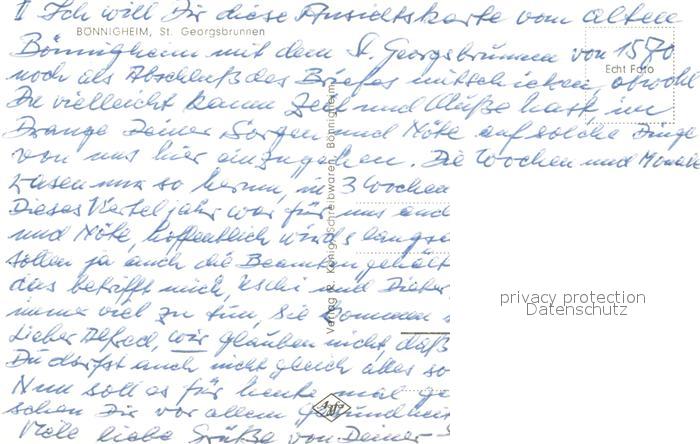 II Ich will Dir diese Ansichtskarte vom alten
BÖNNIGHEIM, St. Georgsbrunnen
Bönnigheim mit dem St. Georgsbrunnen von 1570
Echt Foto
noch als Abschluß des Briefes mitschicken, obwohl
Du vielleicht kaum Zeit und Muße hast, im
Drange Deiner Sorgen und Nöte auf solche Dinge
von uns hier einzugehen. Die Wochen und Monate
rasen nur so herum, in 3 Wochen
Dieses Vierteljahr war für uns auch
und Nöte, hoffentlich wird's langsa
sollen ja auch die Beamtengehält
das betrifft mich, und Dieter
immer viel zu tun, sie kommen
Lieber Alfred, wir glauben nicht, daß
Du darfst auch nicht gleich alles so
Nun soll es für heute mal ge
schen Dir vor allem Gesundheit
Viele liebe Grüße von Deiner
Verlag R. König, Schreibwaren, Bönnigheim
Agfa
privacy protection
Datenschutz